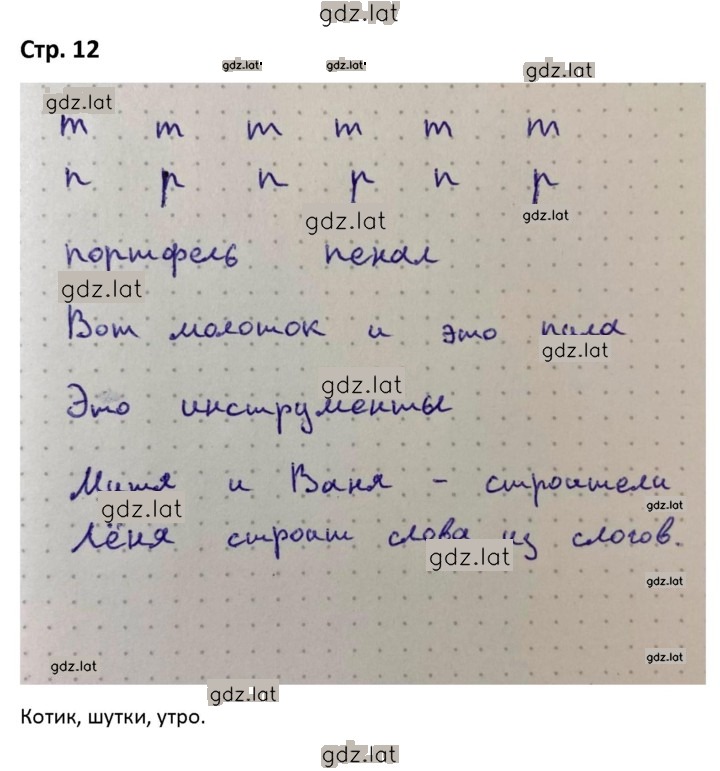 gdz.lat
Стр. 12
gdz.lat gdz.lat gdz.lat
gdz.lat
т т т т т т
п р п р п р
gdz.lat gdz.lat
портфель пенал
gdz.lat
Вот молоток и это пила
gdz.lat
gdz.lat
Это инструменты
Митя и Ваня - строители
gdz.lat gdz.lat
Лёня строит слова из слогов.
gdz.lat
gdz.lat
gdz.lat gdz.lat
gdz.lat
Котик, шутки, утро.
gdz.lat